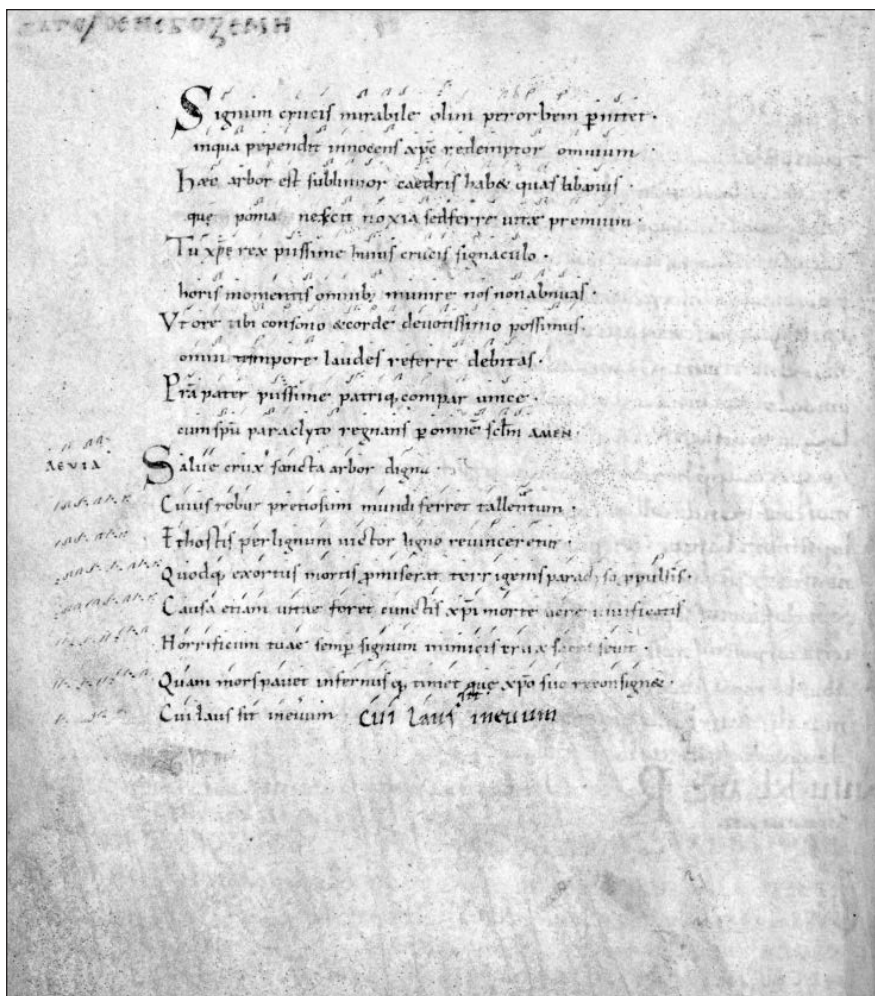 Signum crucis mirabile olim per orbem p̄nitet ·
inqua pependit innocens xp̄c redemptor omnium
Haec arbor est sublimior caedris hab& quas libanus
quę poma nescit noxia sedferre uitae premium ·
Tu xp̄e rex piissime huius crucis signaculo ·
horis momentis omnib; munire nos nonabnuas ·
Vt ore tibi consono &corde deuotissimo possimus
omni tempore laudes referre debitas ·
Prā pater piissime patriq; compar unice ·
cumsp̄u paraclyto regnans p omnē sclm AMEN ·
AEVIA Salue crux sancta arbor digna
Cuius robur pretiosum mundi ferret tallentum ·
Ethostis perlignum uictor ligno reuinceretur ·
Quodq; exortus mortis pmiserat terrigenis paradiso ppulsis ·
Causa etiam uitae foret cunctis xp̄i morte uere uiuificatis
Horrificum tuae semp signum inimicis crux
Quam mors pauet infernus q; timet que xp̄o suo reconsign& ·
Cui laus sit ineuum cui laus ineuum